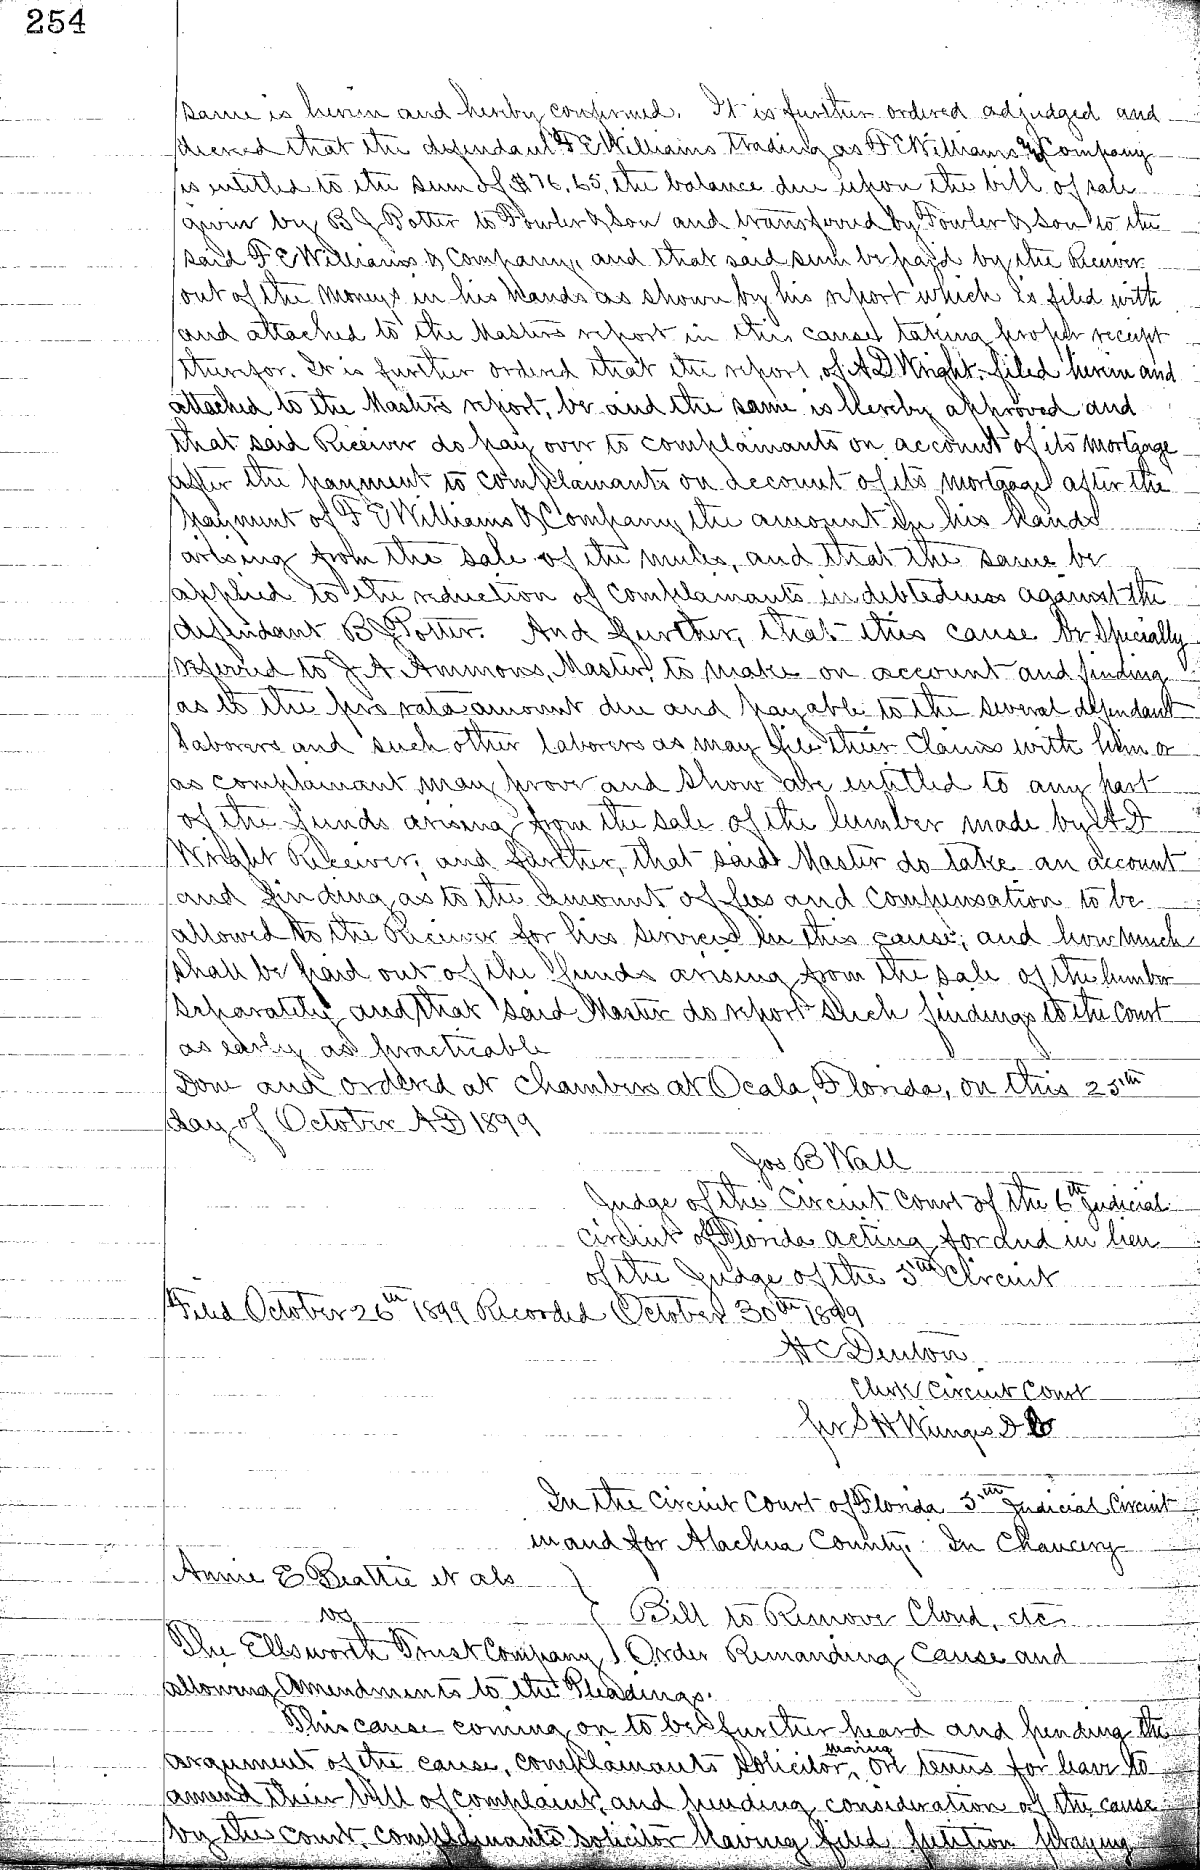 254
same is herein and hereby confirmed. It is further ordered adjudged and
decreed that the defendant F E Williams trading as F E Williams & Company
is entitled to the sum of $76.65, the balance due upon the bill of sale
given by B J Potter to Fowler & Son and transferred by Fowler & Son to the
said F E Williams & Company, and that said sum be paid by the Receiver
out of the moneys in his hands as shown by his report which is filed with
and attached to the Masters report in this cause taking proper receipt
therefor. It is further ordered that the report of A D Wright, filed herein and
attached to the Master's report, be and the same is hereby approved and
that said Receiver do pay over to complainants on account of its mortgage
after the payment to complainants on account of its mortgage after the
payment of F E Williams & Company the amount in his hands
arising from the sale of the mules, and that the same be
applied to the reduction of complainants indebtedness against the
defendant B J Potter. And further, that this cause be specially
referred to J A Ammons, Master, to make on account and finding
as to the pro rata amount due and payable to the several defendant
laborers and such other laborers as may file their claims with him or
as complainant may prove and show are entitled to any part
of the funds arising from the sale of the lumber made by A D
Wright Receiver, and further, that said Master do take an account
and finding as to the amount of fees and compensation to be
allowed to the Receiver for his services in this cause, and how much
shall be paid out of the funds arising from the sale of the lumber
separately and that said Master do report such findings to the Court
as early as practicable
Done and ordered at Chambers at Ocala, Florida, on this 25th
day of October A D 1899
Jos B Wall
Judge of the Circuit Court of the 6th Judicial
circuit of Florida acting for and in lieu
of the Judge of the 5th Circuit
Filed October 26th 1899 Recorded October 30th 1899
H C Denton
Clerk Circuit Court
per S H Wienges D C
In the Circuit Court of Florida 5th Judicial Circuit
in and for Alachua County. In Chancery
Annie E Beattie et als
vs } Bill to Remove Cloud, etc
The Ellsworth Trust Company } Order Remanding Cause and
allowing Amendments to the Pleadings.
This cause coming on to be further heard and pending the
argument of the cause, complainants solicitor, moving on terms for leave to
amend their bill of complaint, and pending consideration of the cause
by the court, complainants solicitor having filed petition praying